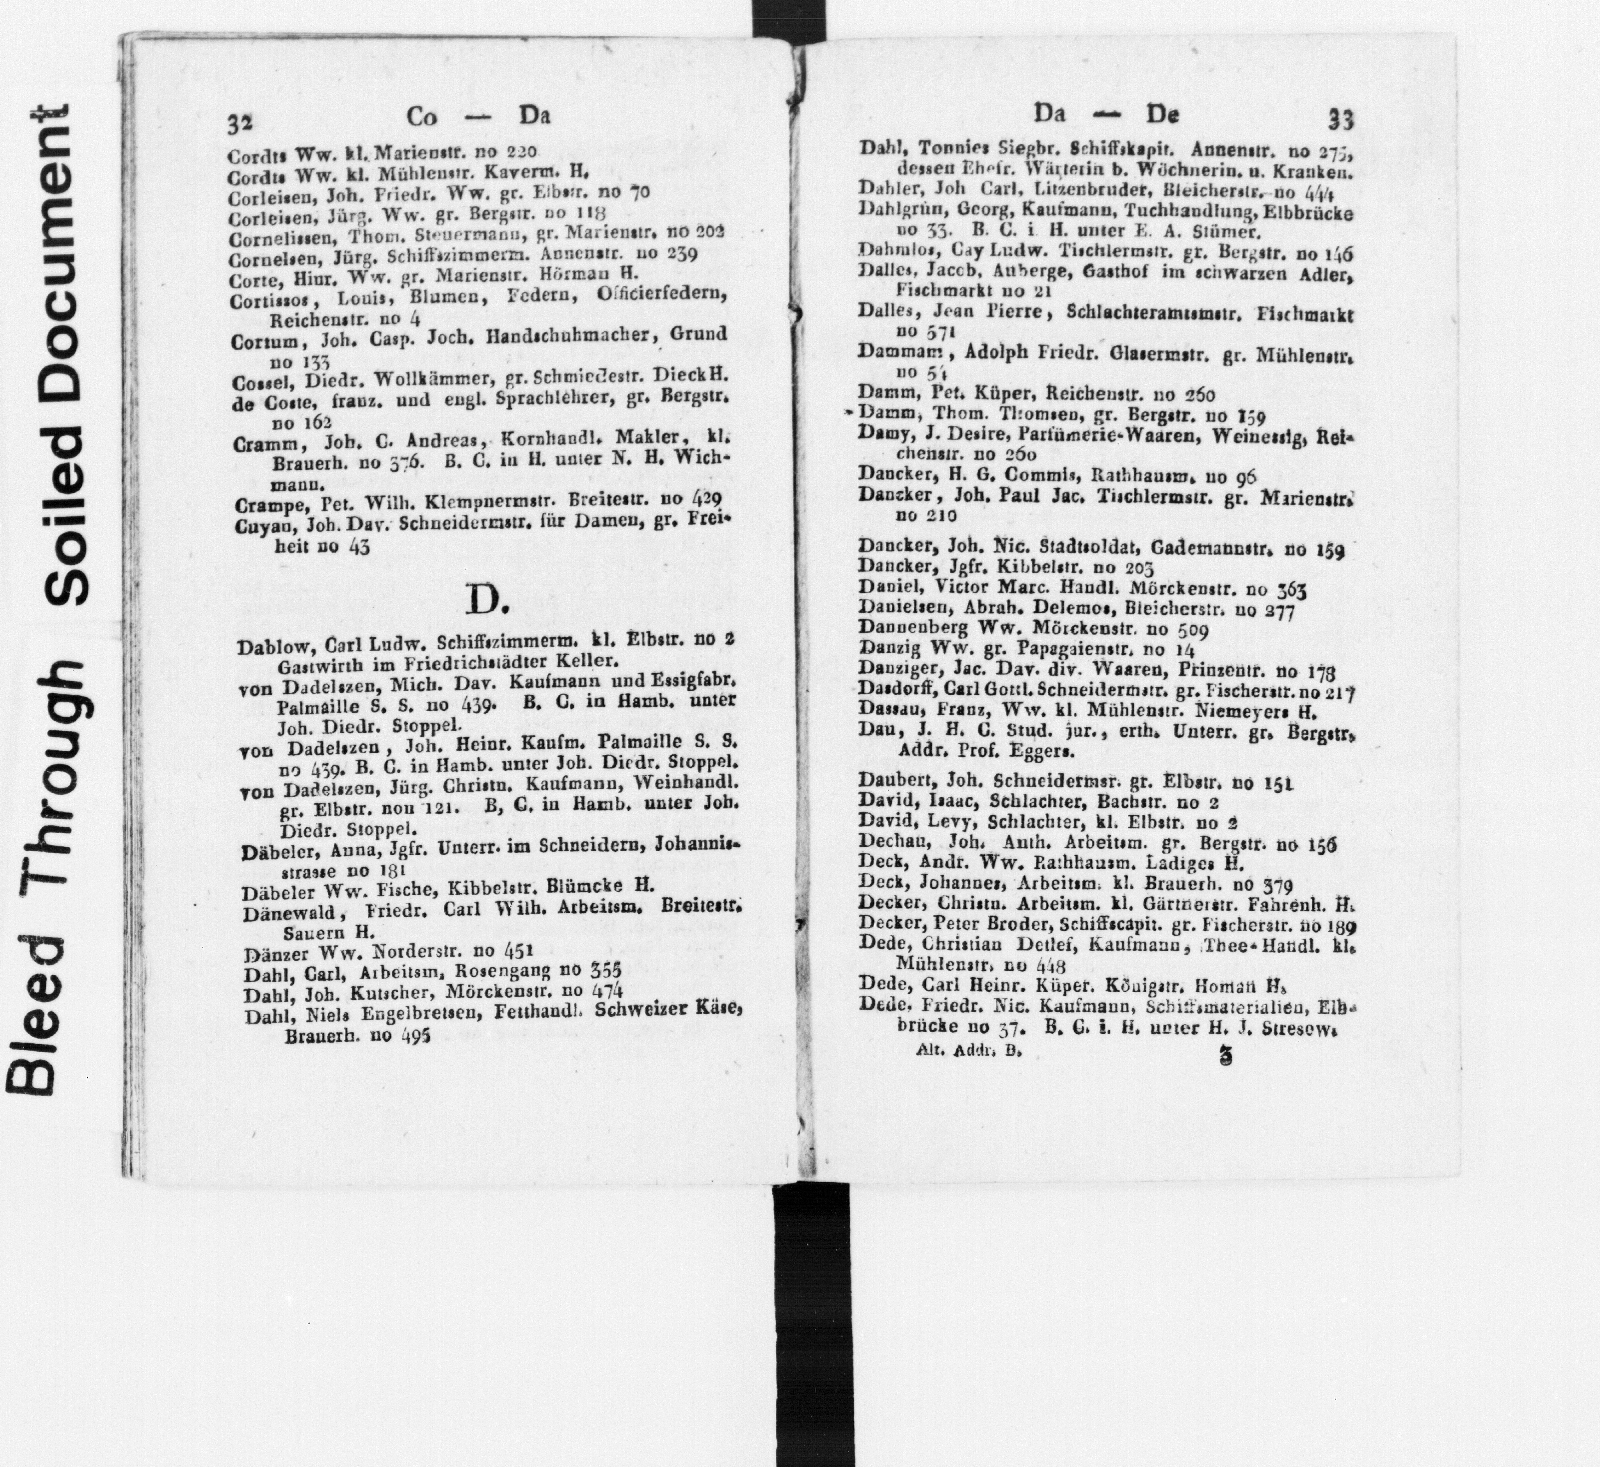 Bleed Through Soiled Document
32 Co — Da
Cordts Ww. kl. Marienstr. no 220
Cordts Ww. kl. Mühlenstr. Kaverm. H.
Corleisen, Joh. Friedr. Ww. gr. Elbstr. no 70
Corleisen, Jürg. Ww. gr. Bergstr. no 118
Cornelissen, Thom. Steuermann, gr. Marienstr. no 202
Cornelsen, Jürg. Schiffszimmerm. Annenstr. no 239
Corte, Hinr. Ww. gr. Marienstr. Hörman H.
Cortissos, Louis, Blumen, Federn, Officierfedern,
Reichenstr. no 4
Cortum, Joh. Casp. Joch. Handschuhmacher, Grund
no 133
Cossel, Diedr. Wollkämmer, gr. Schmiedestr. Dieck H.
de Coste, franz. und engl. Sprachlehrer, gr. Bergstr.
no 162
Cramm, Joh. C. Andreas, Kornhandl. Makler, kl.
Brauerh. no 376. B. C. in H. unter N. H. Wich-
mann.
Crampe, Pet. Wilh. Klempnermstr. Breitestr. no 429
Cuyan, Joh. Dav. Schneidermstr. für Damen, gr. Frei-
heit no 43
D.
Dablow, Carl Ludw. Schiffszimmerm. kl. Elbstr. no 2
Gastwirth im Friedrichstädter Keller.
von Dadelszen, Mich. Dav. Kaufmann und Essigfabr.
Palmaille S. S. no 439. B. C. in Hamb. unter
Joh. Diedr. Stoppel.
von Dadelszen, Joh. Heinr. Kaufm. Palmaille S. S.
no 439. B. C. in Hamb. unter Joh. Diedr. Stoppel.
von Dadelszen, Jürg. Christn. Kaufmann, Weinhandl.
gr. Elbstr. non 121. B, C. in Hamb. unter Joh.
Diedr. Stoppel.
Däbeler, Anna, Jgfr. Unterr. im Schneidern, Johannis-
strasse no 181
Däbeler Ww. Fische, Kibbelstr. Blümcke H.
Dänewald, Friedr. Carl Wilh. Arbeitsm. Breitestr.
Sauern H.
Dänzer Ww. Norderstr. no 451
Dahl, Carl, Arbeitsm, Rosengang no 355
Dahl, Joh. Kutscher, Mörckenstr. no 474
Dahl, Niels Engelbretsen, Fetthandl. Schweizer Käse,
Brauerh. no 495
Da — De 33
Dahl, Tonnies Siegbr. Schiffskapit. Annenstr. no 275,
dessen Ehefr. Wärterin b. Wöchnerin. u. Kranken.
Dahler, Joh Carl, Litzenbruder, Bleicherstr. no 444
Dahlgrün, Georg, Kaufmann, Tuchhandlung, Elbbrücke
no 33. B. C. i H. unter E. A. Stümer.
Dahmlos, Cay Ludw. Tischlermstr. gr. Bergstr. no 146
Dalles, Jacob, Auberge, Gasthof im schwarzen Adler,
Fischmarkt no 21
Dalles, Jean Pierre, Schlachteramtsmstr. Fischmarkt
no 571
Dammam, Adolph Friedr. Glasermstr. gr. Mühlenstr.
no 54
Damm, Pet. Küper, Reichenstr. no 260
Damm, Thom. Thomsen, gr. Bergstr. no 159
Damy, J. Desire, Parfümerie-Waaren, Weinessig, Rei-
chenstr. no 260
Dancker, H. G. Commis, Rathhausm. no 96
Dancker, Joh. Paul Jac. Tischlermstr. gr. Marienstr.
no 210
Dancker, Joh. Nic. Stadtsoldat, Gademannstr. no 159
Dancker, Jgfr. Kibbelstr. no 203
Daniel, Victor Marc. Handl. Mörckenstr. no 363
Danielsen, Abrah. Delemos, Bleicherstr. no 277
Dannenberg Ww. Mörckenstr. no 509
Danzig Ww. gr. Papagaienstr. no 14
Danziger, Jac. Dav. div. Waaren, Prinzentr. no 178
Dasdorff, Carl Gottl. Schneidermstr. gr. Fischerstr. no 217
Dassau, Franz, Ww. kl. Mühlenstr. Niemeyers H.
Dau, J. H. C. Stud. jur., erth. Unterr. gr. Bergstr.
Addr. Prof. Eggers.
Daubert, Joh. Schneidermsr. gr. Elbstr. no 151
David, Isaac, Schlachter, Bachstr. no 2
David, Levy, Schlachter, kl. Elbstr. no 2
Dechau, Joh. Anth. Arbeitsm. gr. Bergstr. no 156
Deck, Andr. Ww. Rathhausm. Ladiges H.
Deck, Johannes, Arbeitsm. kl. Brauerh. no 379
Decker, Christn. Arbeitsm. kl. Gärtnerstr. Fahrenh. H.
Decker, Peter Broder, Schiffscapit. gr. Fischerstr. no 189
Dede, Christian Detlef, Kaufmann, Thee-Handl. kl.
Mühlenstr. no 448
Dede, Carl Heinr. Küper. Königstr. Homan H.
Dede, Friedr. Nic. Kaufmann, Schiffsmaterialien, Elb-
brücke no 37. B. C. i. H. unter H. J. Stresow.
Alt. Addr. B. 3